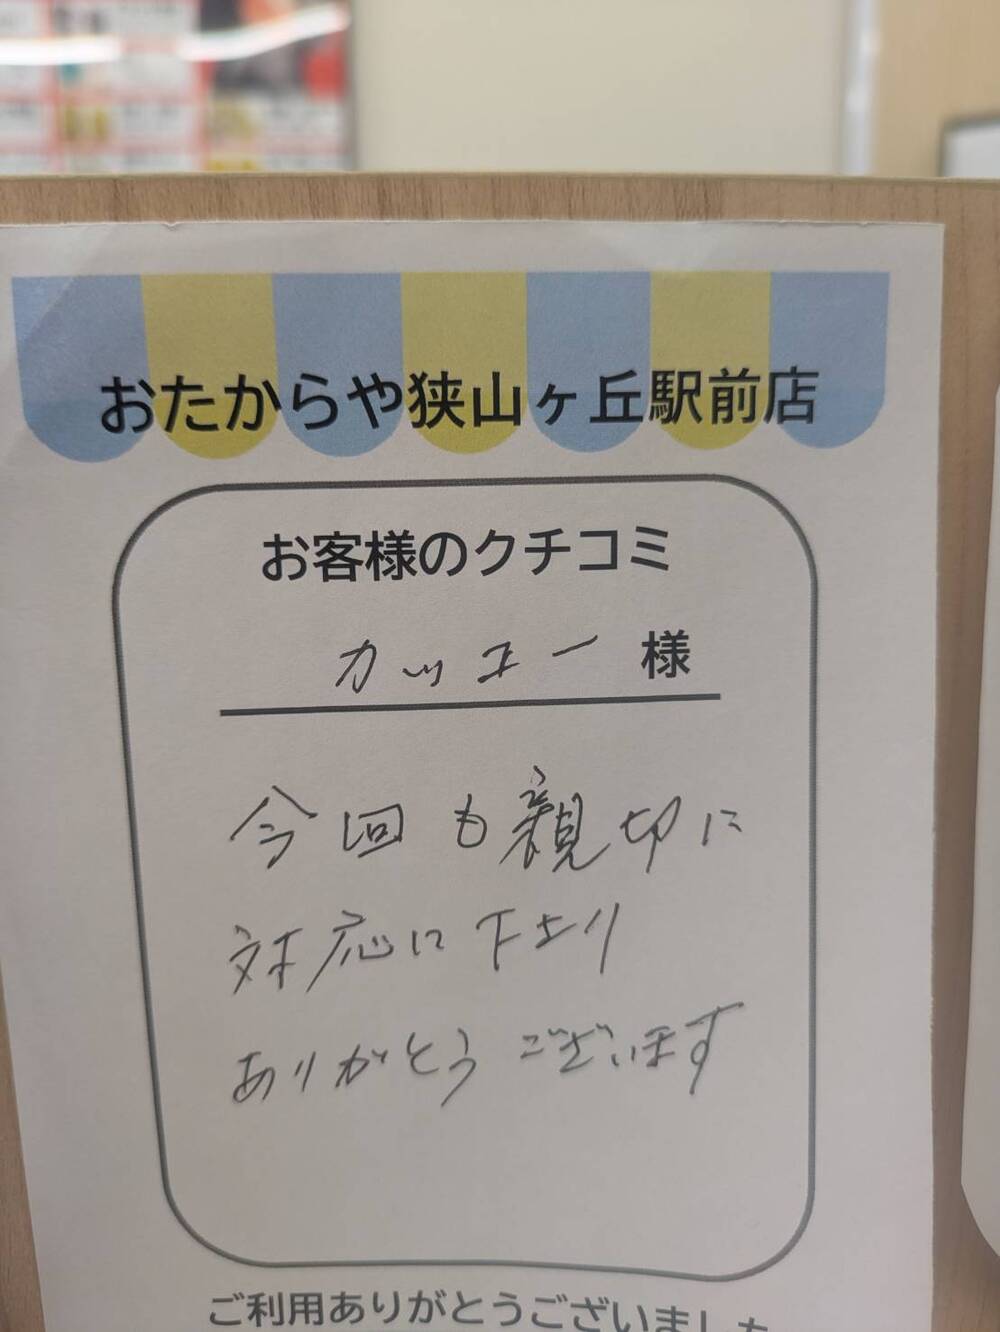 おたからや狭山ヶ丘駅前店
お客様のクチコミ
カッコー 様
今回も親切に
対応に下さり
ありがとうございます
ご利用ありがとうございました